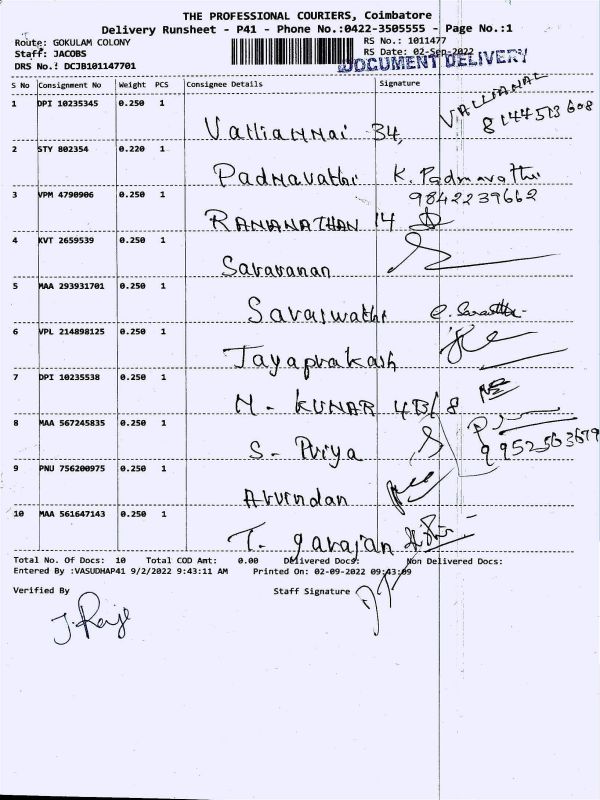 THE PROFESSIONAL COURIERS, Coimbatore
Delivery Runsheet - P41 - Phone No.:0422-3505555 - Page No.:1
Route: GOKULAM COLONY RS No.: 1011477
Staff: JACOBS RS Date: 02-Sep-2022
DRS No.: DCJB101147701 DOCUMENT DELIVERY
S No Consignment No Weight PCS Consignee Details Signature
1 DPI 10235345 0.250 1 VALLIAMMAL
Valliammai 34, 8144513608
2 STY 802354 0.220 1
Padmavathi K. Padmavathi
3 VPM 4790906 0.250 1 9842239662
RAMANATHAN 14
4 KVT 2659539 0.250 1
Saravanan
5 MAA 293931701 0.250 1
Saraswathi
6 VPL 214898125 0.250 1
Jayaprakash
7 DPI 10235538 0.250 1
M - KUMAR 4B/8
8 MAA 567245835 0.250 1
S - Priya 9952563679
9 PNU 756200975 0.250 1
Arvindan
10 MAA 561647143 0.250 1
T.
Total No. Of Docs: 10 Total COD Amt: 0.00 Delivered Docs: Non Delivered Docs:
Entered By :VASUDHAP41 9/2/2022 9:43:11 AM Printed On: 02-09-2022 09:43:09
Verified By Staff Signature